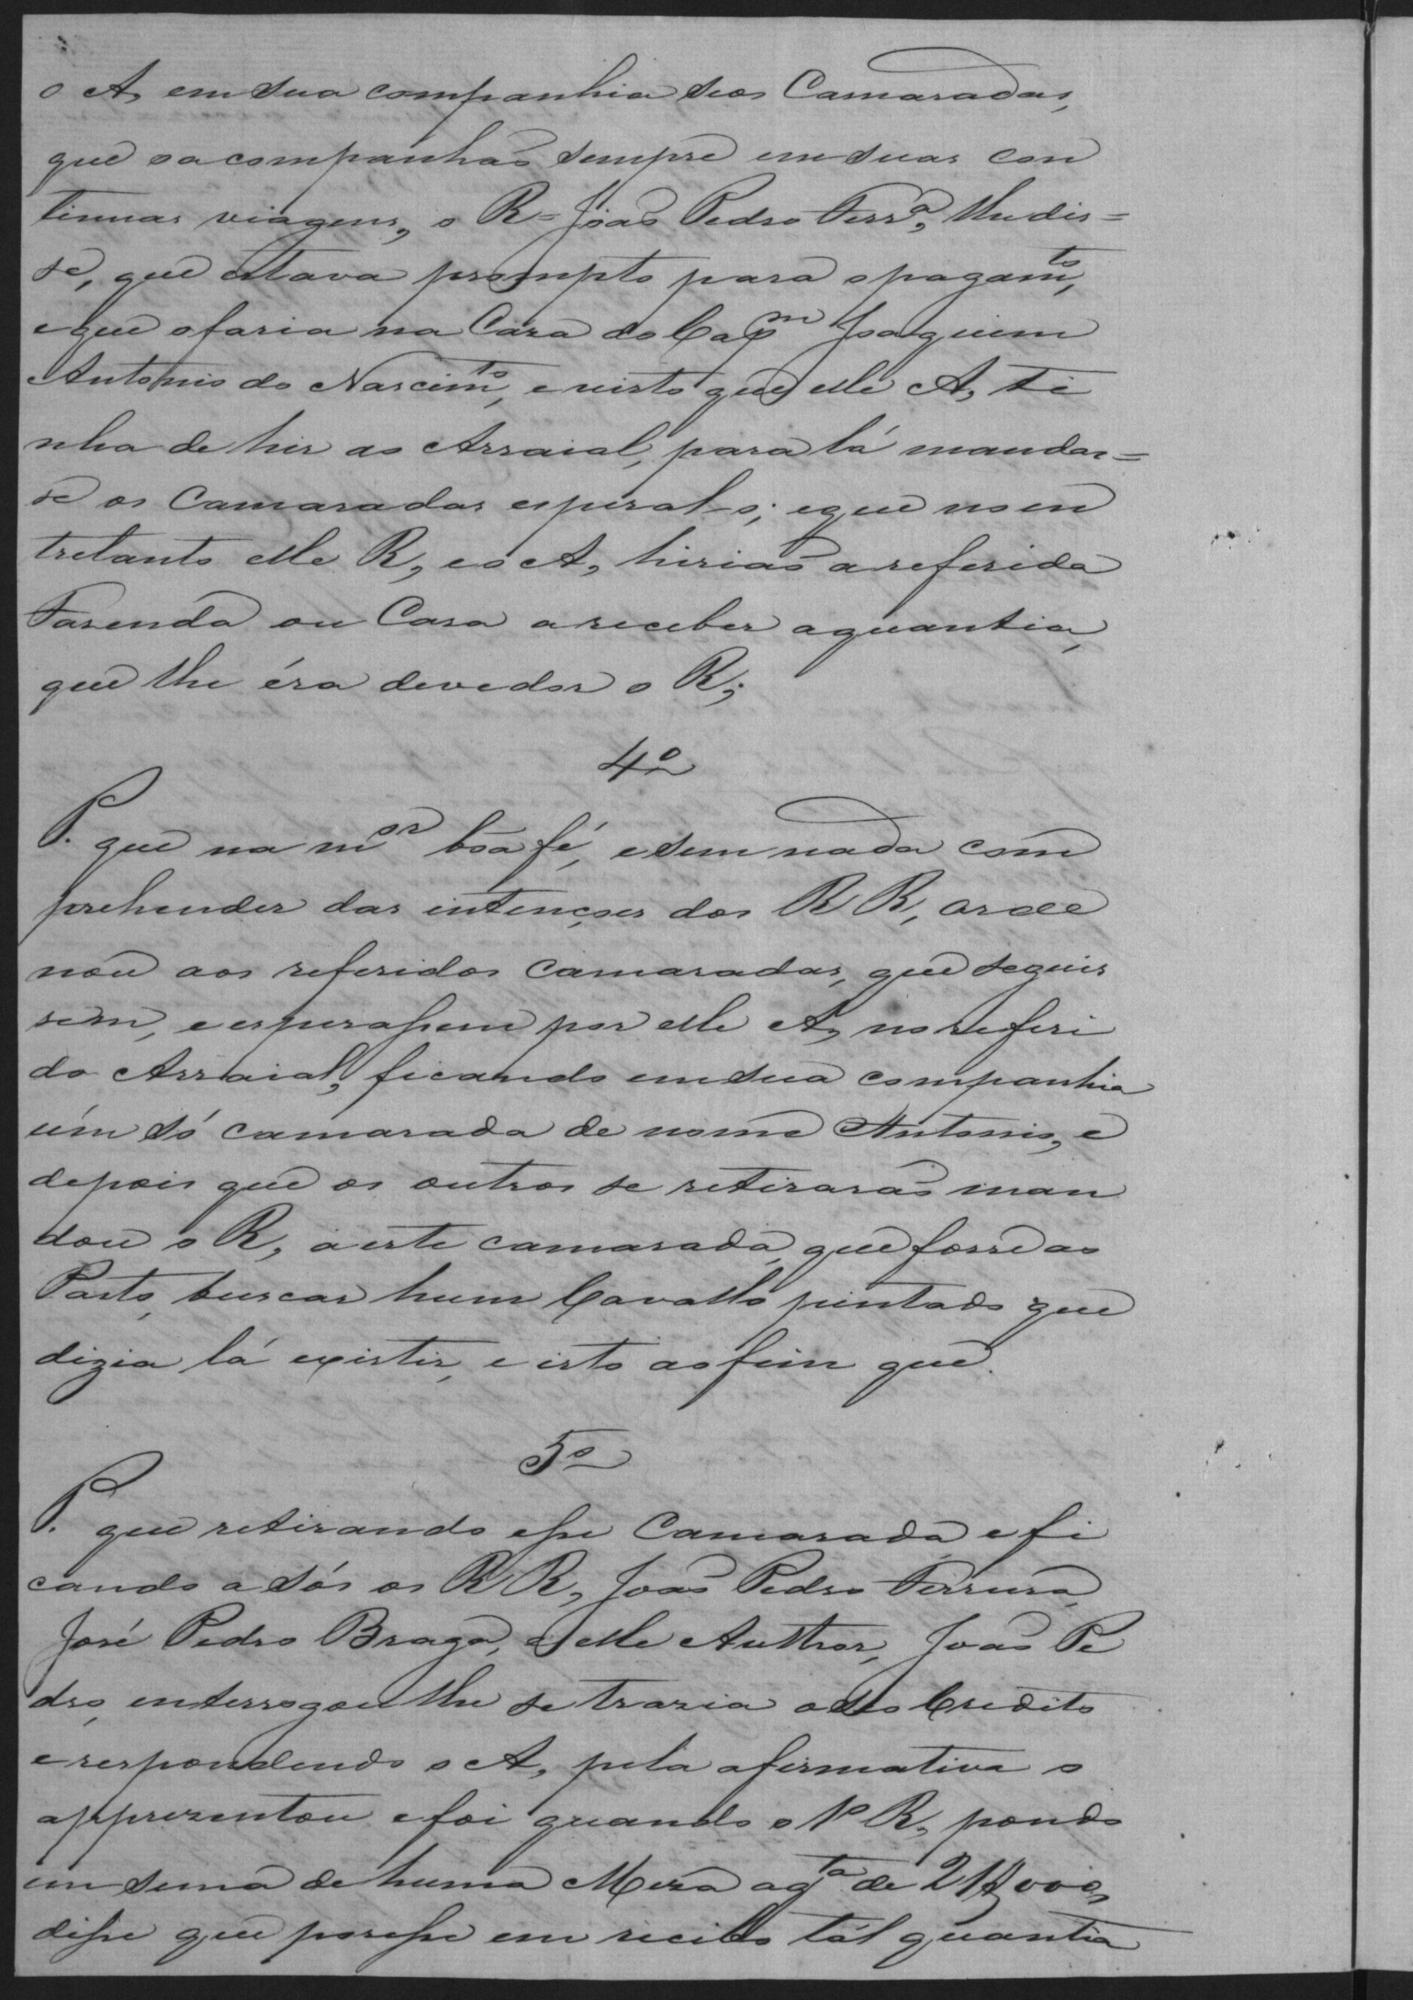 o A, em sua companhia seos Camaradas,
que o acompanhaõ sempre em suas con
tinuas viagens, o R= Joaõ Pedro Ferrª, lhe dis=
se, que estava prompto para o pagamto,
e que o faria na Caza do Capm Joaquim
Antonio do Nascimto, e visto que elle A, ti
nha de hir ao Arraial, para lá mandas=
se os Camaradas esperal-o; e que no en
tretanto elle R, e o A, hiriaõ a referida
Fasenda ou Casa a receber a quantia,
que lhe éra devedor o R;
4º
P. que na mor boa fé, e sem nada com
prehender das intençoes dos R R, orde
nou aos referidos Camaradas, que seguis
sem, e esperassem por elle A, no referi
do Arraial, ficando em sua companhia
úm só camarada de nome Antonio, e
depois que os outros se retiraraõ man
dou o R, a este camarada, que fosse ao
Pasto, buscar hum Cavallo pintado que
dizia lá existir, e isto ao fim que.
5º
P. que retirando esse Camarada, e fi
cando a sós os R R, Joaõ Pedro Ferreira,
José Pedro Braga, e elle Aulthor, Joaõ Pe
dro, enterrogou lhe se trazia o seo Credito
e respondendo o A, pela afirmativa o
apprezentou e foi quando o 1º R, pondo
em sima de huma Meza a qta de 21$000,
disse que posesse em recibo tál quantia